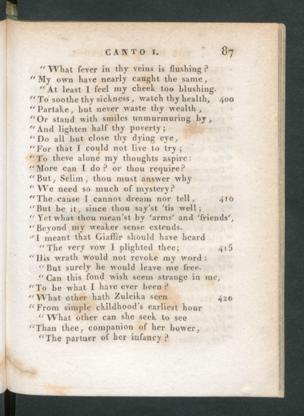 CANTO I. 87
"What fever in thy veins is flushing?
"My own have nearly caught the same,
"At least I feel my cheek too blushing.
"To soothe thy sickness, watch thy health, 400
"Partake, but never waste thy wealth,
"Or stand with smiles unmurmuring by,
"And lighten half thy poverty;
"Do all but close thy dying eye,
"For that I could not live to try;
"To these alone my thoughts aspire:
"More can I do? or thou require?
"But, Selim, thou must answer why
"We need so much of mystery?
"The cause I cannot dream nor tell, 410
"But be it, since thou say'st 'tis well;
"Yet what thou mean'st by 'arms' and 'friends',
"Beyond my weaker sense extends.
"I meant that Giaffir should have heard
"The very vow I plighted thee; 415
"His wrath would not revoke my word:
"But surely he would leave me free.
"Can this fond wish seem strange in me,
"To be what I have ever been?
"What other hath Zuleika seen 420
"From simple childhood's earliest hour
"What other can she seek to see
"Than thee, companion of her bower,
"The partner of her infancy?